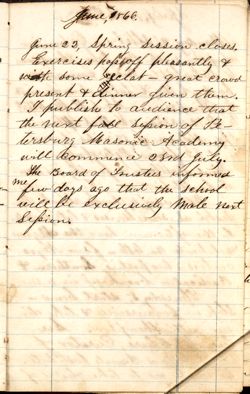 June, 1866.
June 23, Spring Session closes.
Exercises pass off pleasantly &
with some eclat - great crowd
present & dinner given them.
I publish to audience that
the next fall Session of Pe-
tersburg Masonic Academy
will commence 23rd July.
The Board of Trustees informed
me few days ago that the school
will be exclusively Male next
Session.